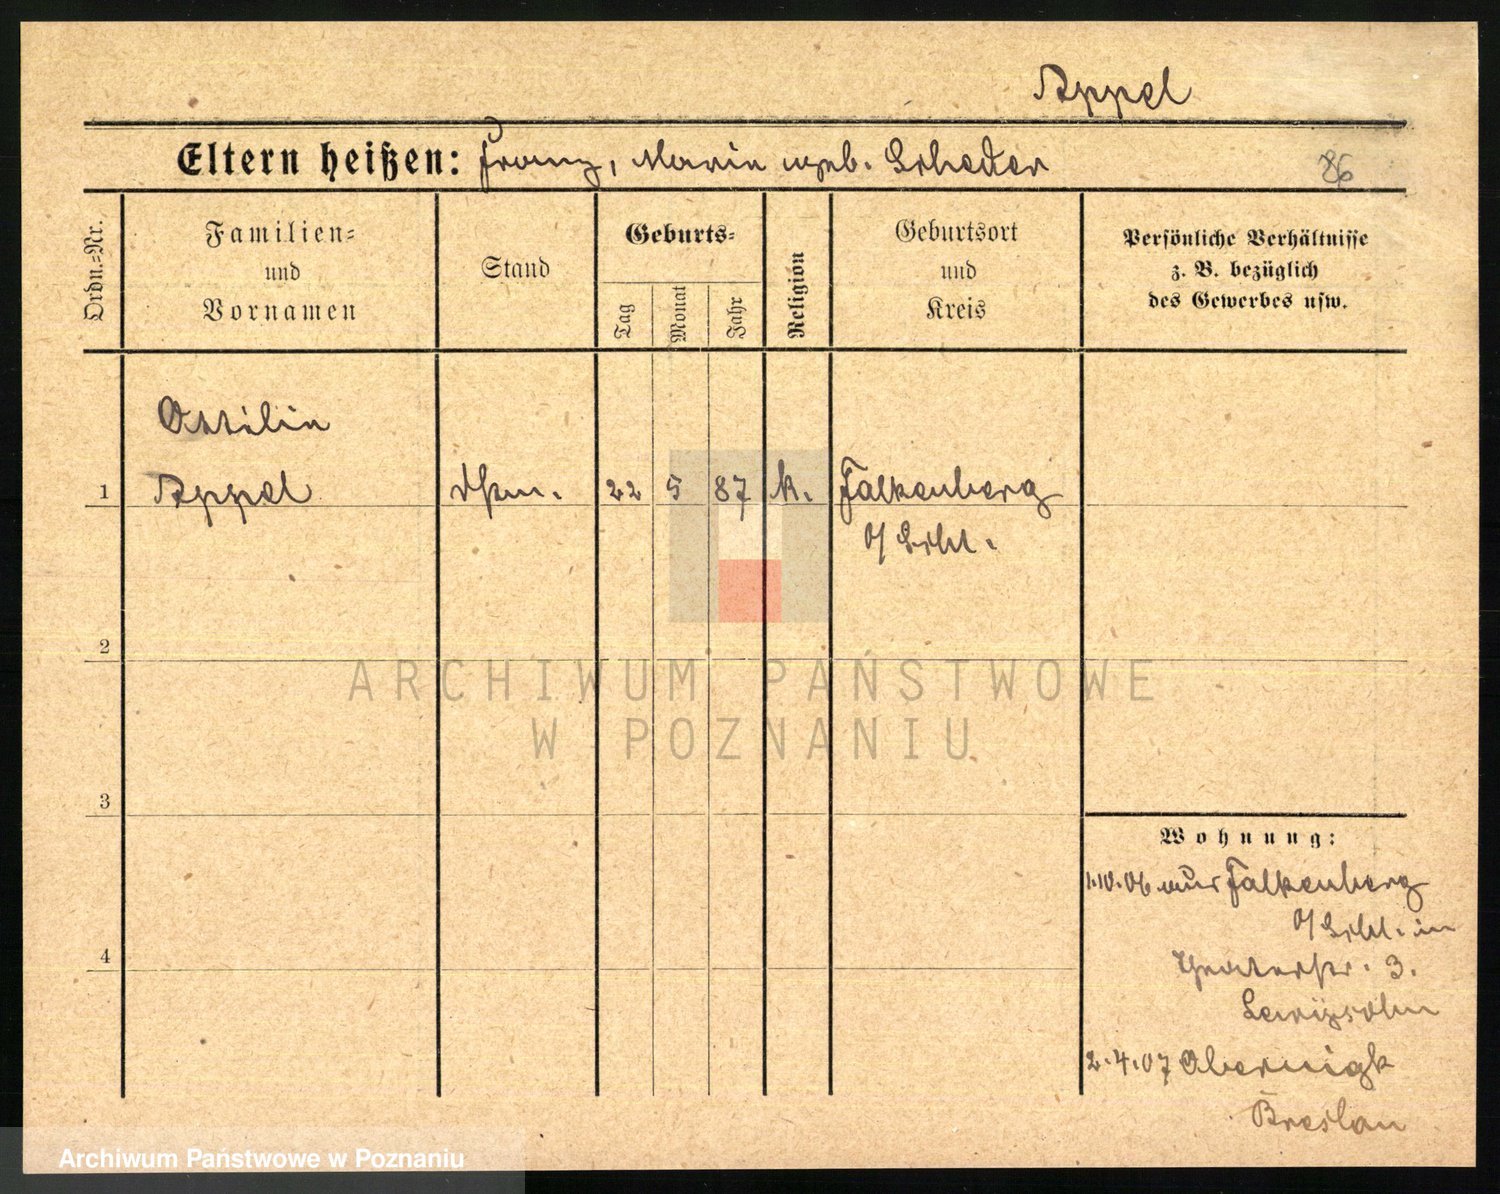 Appel
Eltern heißen: Franz, Maria geb. Scheder
86
Ordn.-Nr.
Familien-
und
Vornamen
Stand
Geburts-
Tag
Monat
Jahr
Religion
Geburtsort
und
Kreis
Persönliche Verhältnisse
z. B. bezüglich
des Gewerbes usw.
Ottilie
1 Appel 22 5 87 k. Falkenberg
O/Schl.
2
3
4
Wohnung:
1.10.06 aus Falkenberg
O/Schl. in
Theaterstr. 3.
Lewysohn
2.4.07 Obernigk
Breslau
ARCHIWUM PAŃSTWOWE
W POZNANIU
Archiwum Państwowe w Poznaniu